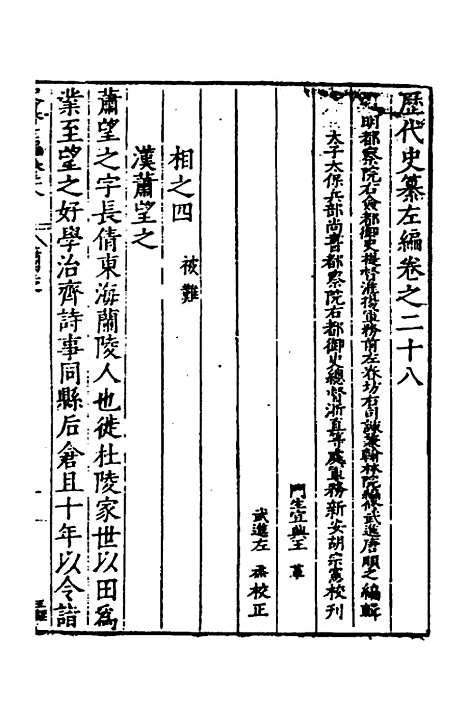 歷代史纂左編卷之二十八
明都察院右僉都御史提督淮揚軍務前左春坊右司諫兼翰林院編修武進唐順之編輯
太子太保兵部尚書都察院右都御史總督浙直等處軍務新安胡宗憲校刊
門生宜興王革
武進左烝校正
相之四 被難
漢蕭望之
蕭望之字長倩東海蘭陵人也徙杜陵家世以田為
業至望之好學治齊詩事同縣后倉且十年以令詣